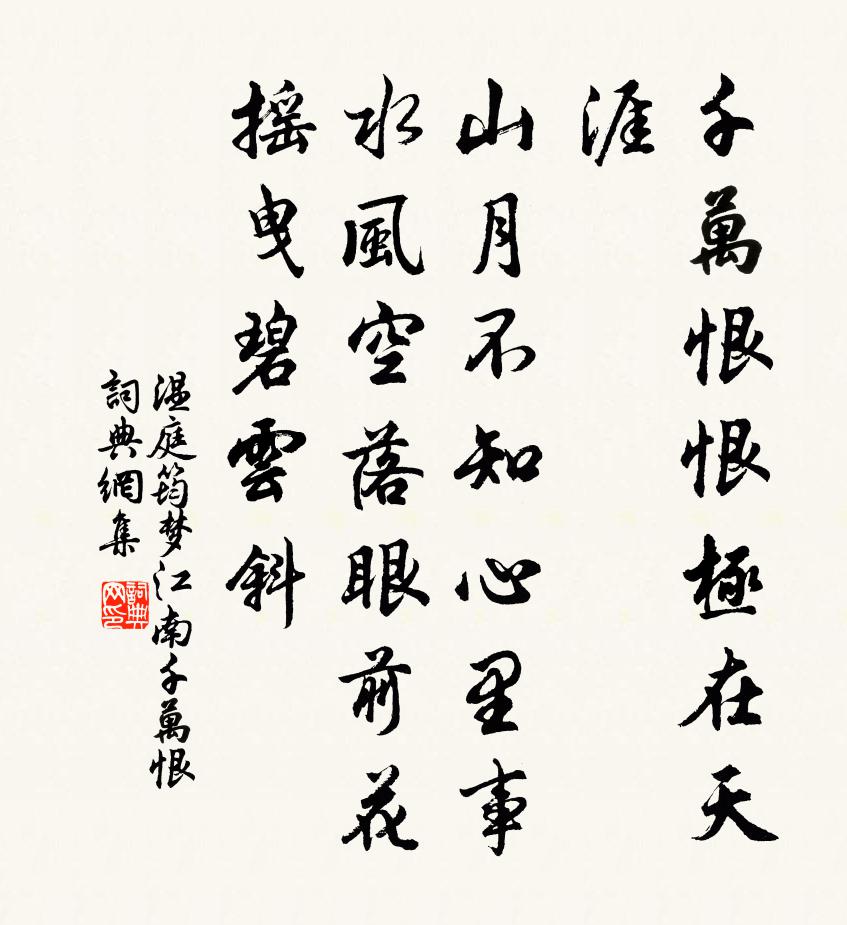 千萬恨恨極在天
涯
山月不知心里事
水風空落眼前花
摇曳碧雲斜
温庭筠梦江南千萬恨
詞典網集
詞典網印